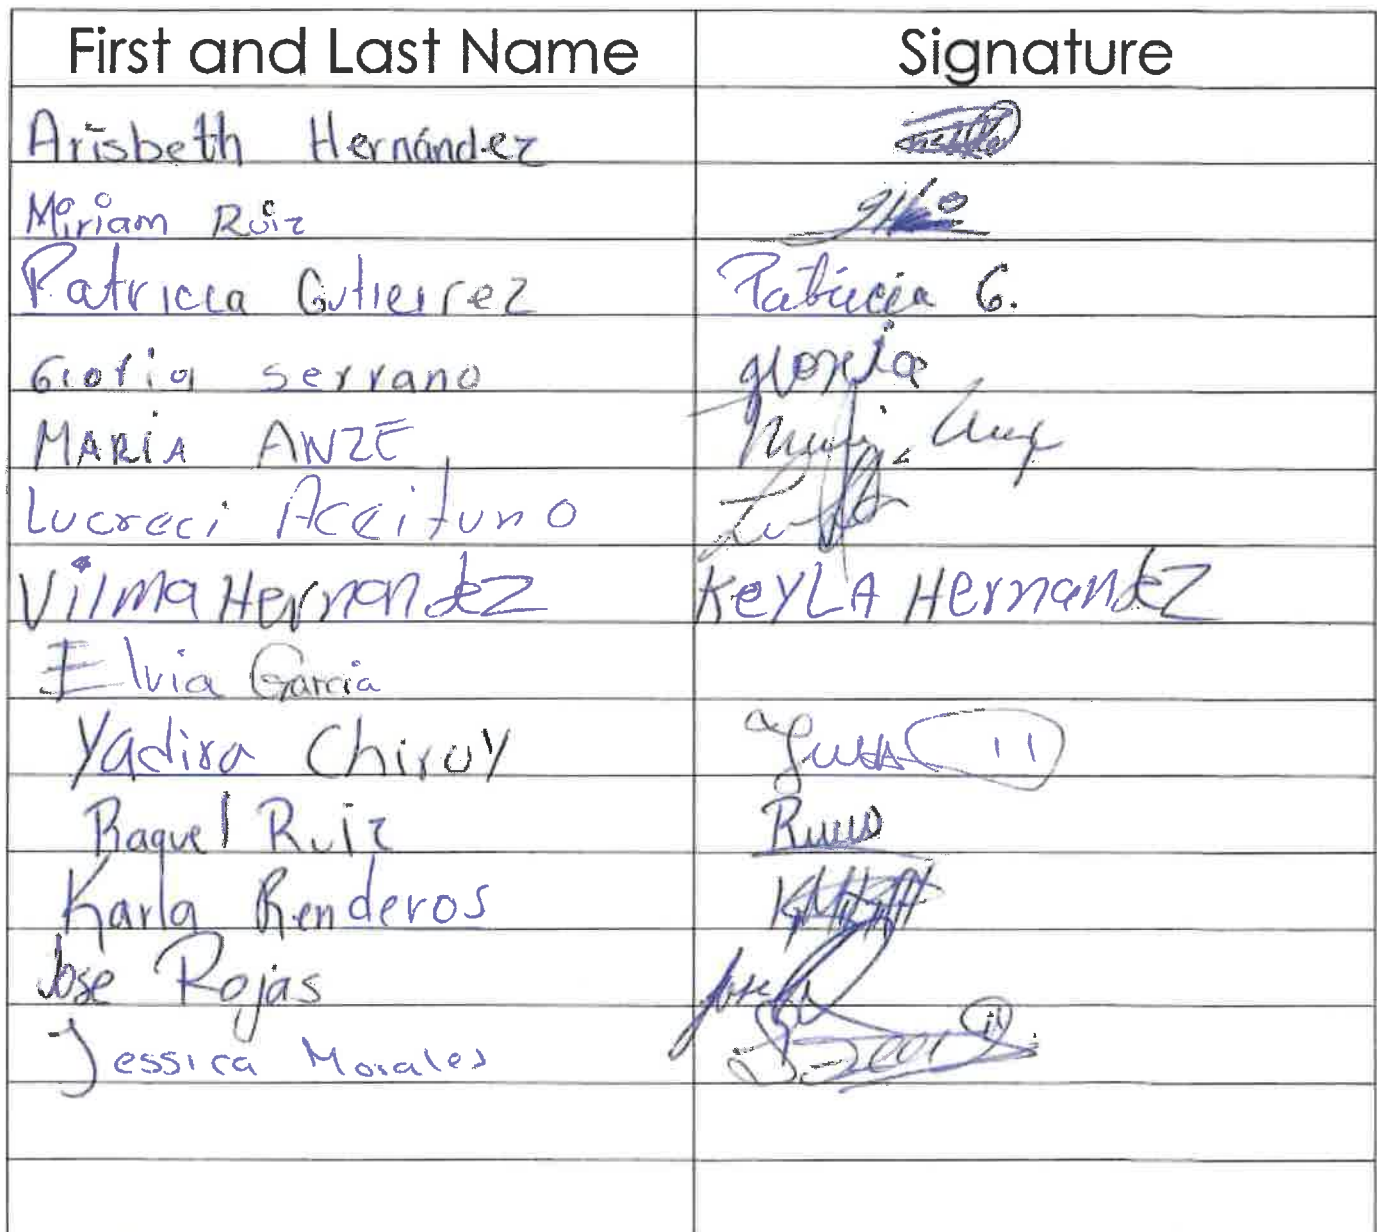 First and Last Name Signature
Arisbeth Hernández
Miriam Ruiz
Patricia Gutierrez Patricia G.
Gloria Serrano gloria
MARIA ANZE
Lucreci Aceituno
Vilma Hernandez KeYLA Hernandez
Elvia Garcia
Yadira Chiroy
Raquel Ruiz
Karla Renderos
Jose Rojas Jose
Jessica Morales